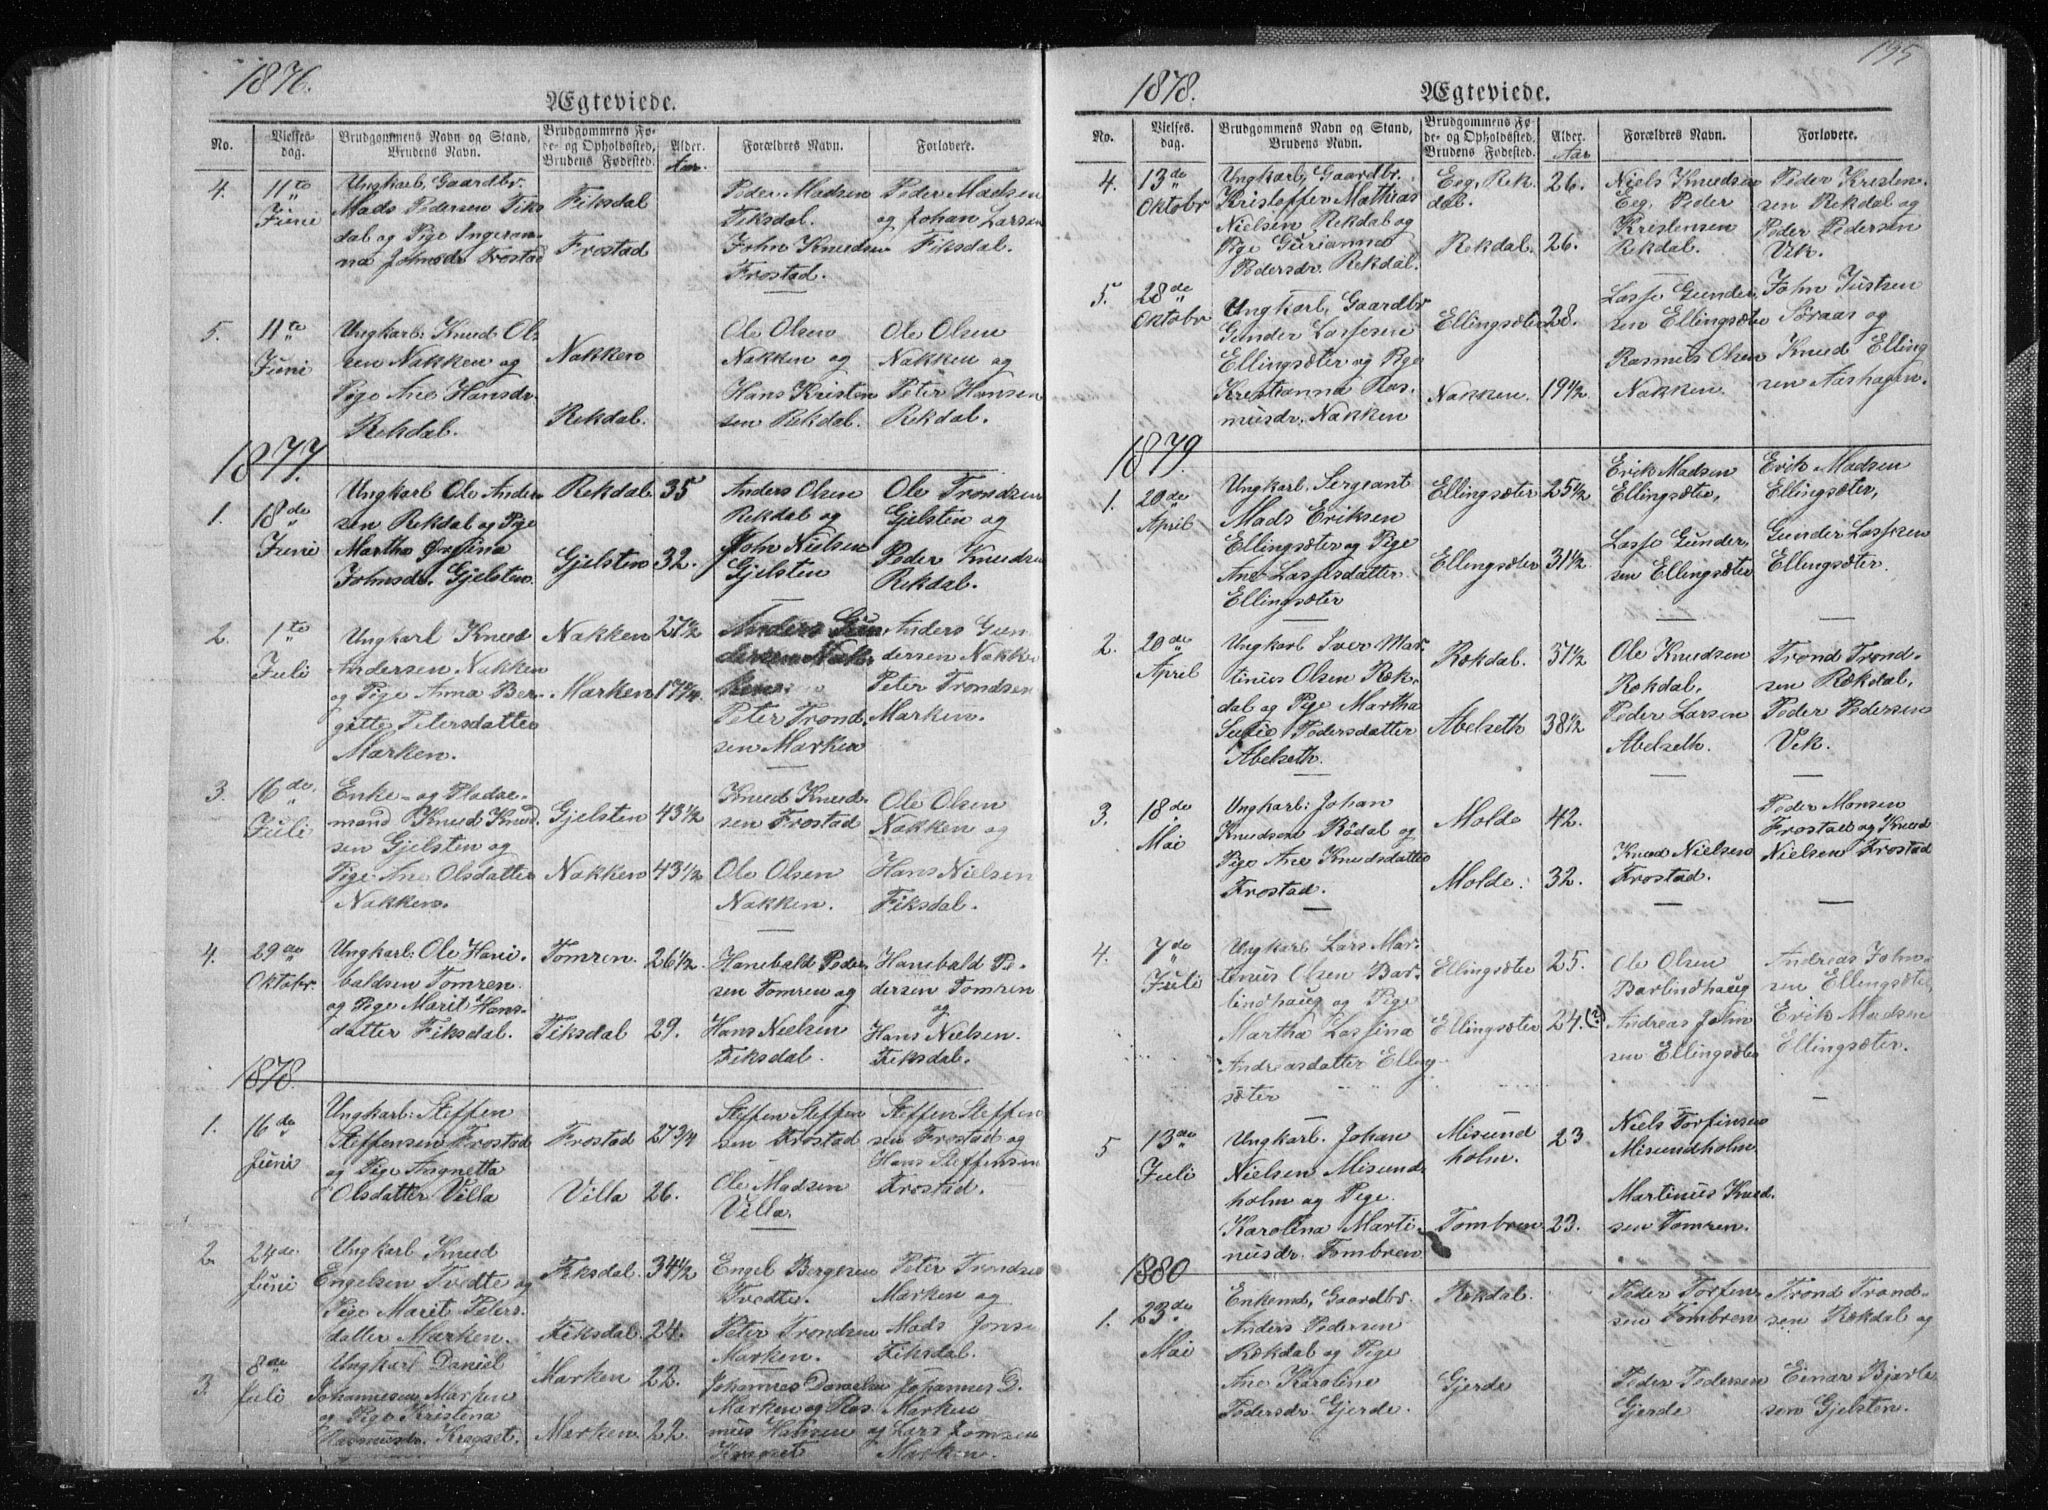 1876.
Ægteviede.
No.
Vielses-
dag.
Brudgommens Navn og Stand,
Brudens Navn.
Brudgommens Fø-
de- og Opholdssted,
Brudens Fødested.
Alder.
Aar.
Forældres Navn.
Forlovere.
4.
11te
Juni
Ungkarl, Gaardbr.
Mads Pedersen Fiks
dal og Pige Ingerian-
na Johnsdr. Frostad
Fiksdal
Frostad
Peder Madsen
Fiksdal.
John Knudsen
Frostad.
Peder Madsen
og Johan Larsen
Fiksdal.
5.
11te
Juni
Ungkarl: Knud Ol-
sen Nakken og
Pige Ane Hansdr.
Rekdal.
Nakken
Rekdal.
Ole Olsen
Nakken og
Hans Kristen
sen Rekdal.
Ole Olsen
Nakken og
Peter Hansen
Rekdal.
1877.
1.
18de
Juni
Ungkarl Ole Ander
sen Rekdal og Pige
Martha
Johnsdr. Gjelsten.
Rekdal
Gjelsten
35
32.
Anders Olsen
Rekdal og
John Nielsen
Gjelsten
Ole Trondsen
Gjelsten og
Peder Knudsen
Rekdal.
2.
1te
Juli
Ungkarl Knud
Andersen Nakken
og Pige Anna Ber-
gitte Petersdatter
Marken.
Nakken
Marken
27½
17¾
Anders Gun
dersen Nak-
ken
Peter Trond
sen Marken
Anders Gun-
dersen Nakke
Peter Trondsen
Marken.
3.
16de
Juli
Enke- og Pladse-
mand Knud Knud-
sen Gjelsten og
Pige Ane Olsdatter
Nakken.
Gjelsten
Nakken
43½
43½
Knud Knud-
sen Frostad
Ole Olsen
Nakken.
Ole Olsen
Nakken og
Hans Nielsen
Fiksdal.
4.
29de
Oktobr.
Ungkarl: Ole Hane-
baldsen Tomren.
og Pige Marit Hans-
datter Fiksdal.
Tomren.
Fiksdal
26½.
29.
Hanebald Peder-
sen Tomren og
Hans Nielsen
Fiksdal.
Hanebald Pe-
dersen Tomren
og
Hans Nielsen.
Fiksdal.
1878.
1.
16de
Juni
Ungkarl: Steffen
Steffensen Frostad
og Pige Angnetta
Olsdatter Villa
Frostad
Villa
27¾
26.
Steffen Steffen
sen Frostad
Ole Madsen
Villa.
Steffen Steffen
sen Frostad og
Hans Steffensen
Frostad.
2.
24de
Juni
Ungkarl Knud
Engelsen Tvedte og
Pige Marit Peters-
datter Marken.
Fiksdal.
Fiksdal.
34½
24.
Engel Bergesen
Tvedte.
Peter Trondsen
Marken.
Peter Trondsen
Marken og
Mads Jonse
Fiksdal.
3.
8de
Juli
Ungkarl Daniel
Johannesen Marken
og Pige Kristena
Rasmusdr. Kragset.
Marken
Marken.
22.
22.
Johannes Danielsen
Marken og Ras
mus Hansen
Kragset
Johannes D.
Marken
og Lars Jonsen
Marken.
195
1878.
Ægteviede.
No.
Vielses-
dag.
Brudgommens Navn og Stand,
Brudens Navn.
Brudgommens Fø-
de- og Opholdssted,
Brudens Fødested.
Alder.
Aar
Forældres Navn.
Forlovere.
4.
13de
Oktobr
Ungkarl, Gaardbr.
Kristoffer Mathias
Nielsen Rekdal og
Pige Gurianna
Pedersdr. Rekdal.
Eeg, Rek
dal.
Rekdal.
26.
26.
Niels Knudsen
Eeg, Peder
Kristensen
Rekdal.
Peder Kristen-
sen Rekdal og
Peder Pedersen
Vik.
5.
28de
Oktobr
Ungkarl, Gaardbr
Gunder Lassesen
Ellingsæter og Pige
Kristianna Ras-
musdr. Nakken
Ellingsæter
Nakken.
28.
19½
Lasse Gunder-
sen Ellingsæter
Rasmus Olsen
Nakken.
John Justsen
Søraas og
Knud Elling
sen Aashagen.
1879.
1.
20de
April
Ungkarl. Sergeant
Mads Eriksen
Ellingsæter og Pige
Ane Lassesdatter
Ellingsæter
Ellingsæter
Ellingsæter
25½
31½
Erik Madsen
Ellingsæter,
Lasse Gunder-
sen Ellingsæter
Erik Madsen
Ellingsæter,
Gunder Lassesen
Ellingsæter.
2.
20de
April
Ungkarl Iver Mar-
tinus Olsen Rek-
dal og Pige Martha
Pedersdatter
Abelseth.
Rekdal.
Abelseth
31½
38½
Ole Knudsen
Rekdal,
Peder Larsen
Abelseth.
Trond Trond-
sen Rekdal,
Peder Pedersen
Vik.
3.
18de
Mai
Ungkarl: Johan
Knudsen Rødal og
Pige Ane Knudsdatter
Frostad.
Molde
Molde.
42.
32.
Knud Nielsen
Frostad.
Peder Monsen
Frostad og Knud
Nielsen Frostad
4.
7de
Juli
Ungkarl Lars Mar-
tinus Olsen Bar-
lindhaug og Pige
Martha Lassina
Andreasdatter Elling-
sæter
Ellingsæter
Ellingsæter
25.
24.(?)
Ole Olsen
Barlindhaug
Andreas John
sen Ellingsæter
Andreas John-
sen Ellingsæter,
Erik Madsen
Ellingsæter.
5
13de
Juli
Ungkarl. Johan
Nielsen Misund
holm og Pige.
Karolina Marti-
nusdr. Tombren
Misund
holm.
Tombren
23
23.
Niels Torfinsen
Misundholm
Martinus Knud-
sen Tomren.
1880
1.
23de
Mai
Enkemd, Gaardbr.
Anders Pedersen
Rekdal og Pige
Ane Karoline
Pedersdr. Gjerde.
Rekdal.
Gjerde
Peder Torfen-
sen Tombren
Peder Pedersen
Gjerde
Trond Trond-
sen Rekdal og
Einar Bjarte-
sen Gjelsten.